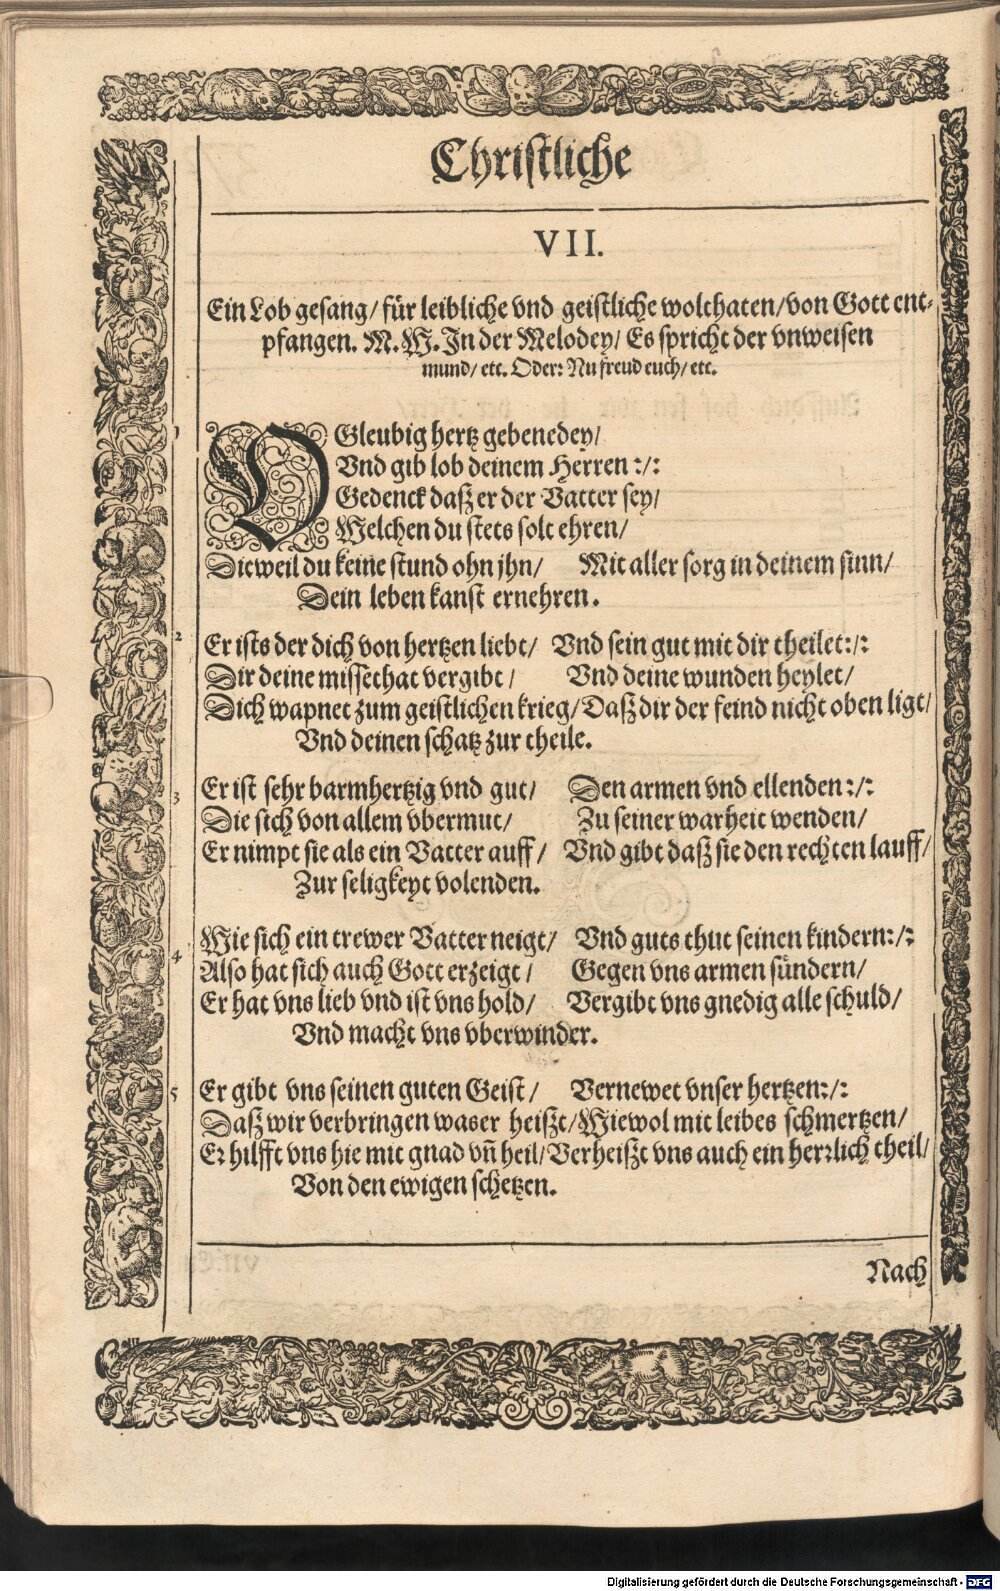 Christliche
VII.
Ein Lob gesang/ für leibliche vnd geistliche wolthaten/ von Gott ent-
pfangen. M. W. In der Melodey/ Es spricht der vnweisen
mund/ etc. Oder: Nu frewd euch/ etc.
1
O Gleubig hertz gebenedey/
Vnd gib lob deinem Herren :/:
Gedenck daß er der Vatter sey/
Welchen du stets solt ehren/
Dieweil du keine stund ohn jhn/ Mit aller sorg in deinem sinn/
Dein leben kanst ernehren.
2
Er ists der dich von hertzen liebt/ Vnd sein gut mit dir theilet:/:
Dir deine missethat vergibt/ Vnd deine wunden heylet/
Dich wapnet zum geistlichen krieg/ Daß dir der feind nicht oben ligt/
Vnd deinen schatz zur theile.
3
Er ist sehr barmhertzig vnd gut/ Den armen vnd ellenden:/:
Die sich von allem vbermut/ Zu seiner warheit wenden/
Er nimpt sie als ein Vatter auff/ Vnd gibt daß sie den rechten lauff/
Zur seligkeyt volenden.
4
Wie sich ein trewer Vatter neigt/ Vnd guts thut seinen kindern:/:
Also hat sich auch Gott erzeigt/ Gegen vns armen sündern/
Er hat vns lieb vnd ist vns hold/ Vergibt vns gnedig alle schuld/
Vnd macht vns vberwinder.
5
Er gibt vns seinen guten Geist/ Vernewet vnser hertzen:/:
Daß wir verbringen waser heißt/ Wiewol mit leibes schmertzen/
Er hilfft vns hie mit gnad vn̄ heil/ Verheißt vns auch ein herrlich theil/
Von den ewigen schetzen.
Nach
Digitalisierung gefördert durch die Deutsche Forschungsgemeinschaft - DFG